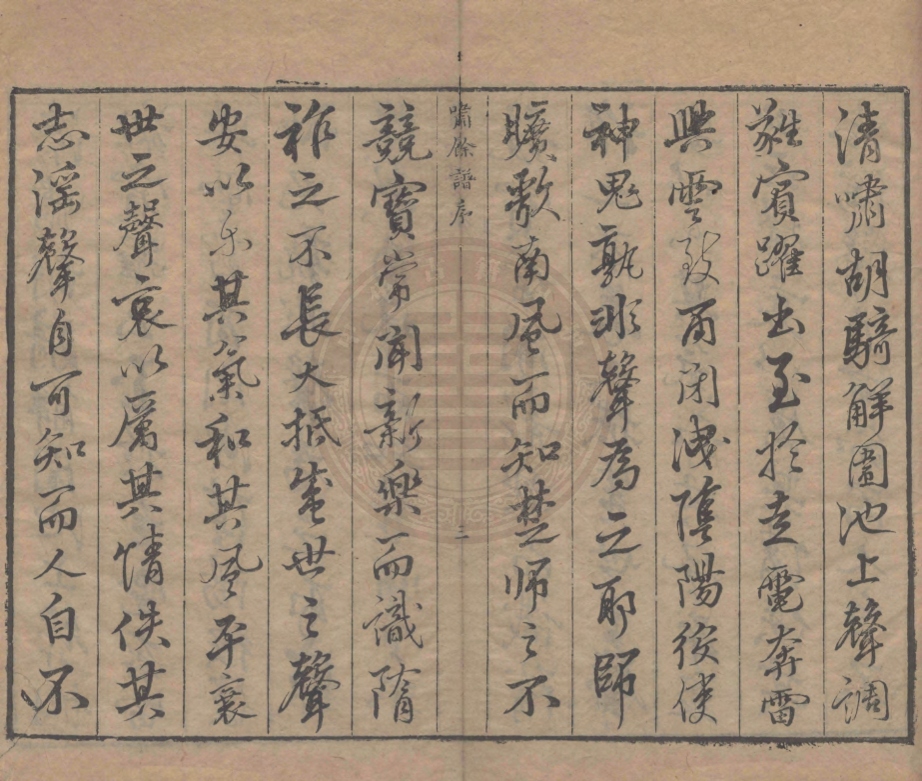 清嘯胡騎解圍池上聲調
蕤賓躍出至於走電奔雷
興雲致雨閉洩陰陽役使
神鬼孰非聲爲之耶師
曠歌南風而知楚師之不
嘯餘譜序
二
競寶常聞新樂而識隋
祚之不長大抵盛世之聲
安以樂其氣和其風平衰
世之聲哀以厲其情佚其
志淫聲自可知而人自不